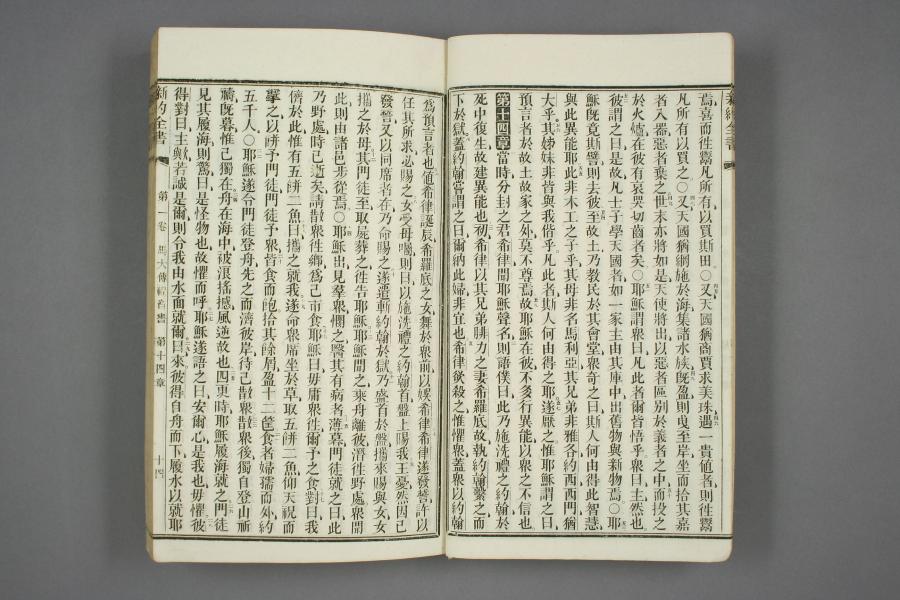 焉喜而往鬻凡所有以買斯田〇又天國猶商賈求美珠遇一貴値者則往鬻
凡所有以買之〇又天國猶網施於海集諸水族旣盈則曳至岸坐而拾其嘉
者入器惡者棄之世末亦將如是天使將出以惡者區別於義者之中而投之
於火爐在彼有哀哭切齒者矣〇耶穌謂衆曰凡此者爾皆悟乎衆曰主然也
彼謂之曰是故凡士子學天國者如一家主由其庫中出舊物與新物焉〇耶
穌旣竟斯譬則去彼至故土乃敎民於其會堂衆奇之曰斯人何由得此智慧
與此異能耶此非木工之子乎其母非名馬利亞其兄弟非雅各約西西門猶
大乎其姊妹非皆與我偕乎凡此者斯人何由得之耶遂厭之惟耶穌謂之曰
預言者於故土故家之外莫不尊焉故耶穌在彼不多行異能以衆之不信也
第十四章當時分封之君希律聞耶穌聲名則語僕曰此乃施洗禮之約翰於
死中復生故建異能也初希律以其兄弟腓力之妻希羅底故執約翰繫之而
下於獄蓋約翰嘗謂之曰爾納此婦非宜也希律欲殺之惟懼衆蓋衆以約翰
爲預言者也値希律誕辰希羅底之女舞於衆前以娛希律希律遂發誓許以
任其所求必賜之女受母囑則曰以施洗禮之約翰首盤上賜我王憂然因己
發誓又以同席者在乃命賜之遂遣斬約翰於獄乃盛首於盤攜來賜與女女
攜之於母其門徒至取屍葬之往告耶穌耶穌聞之乘舟離彼潛往野處衆聞
此則由諸邑步從焉〇耶穌出見羣衆憫之醫其有病者薄暮門徒就之曰此
乃野處時已逝矣請散衆往鄉爲己市食耶穌曰毋庸衆往爾予之食對曰我
儕於此惟有五餅二魚曰攜之就我遂命衆席坐於草取五餅二魚仰天祝而
擘之以餅予門徒門徒予衆皆食而飽拾其餘屑盈十二筐食者婦孺而外約
五千人〇耶穌遂令門徒登舟先之而濟彼岸待己散衆散衆後獨自登山祈
禱旣暮惟己獨在舟在海中被浪搖撼風逆故也四更時耶穌履海就之門徒
見其履海則驚曰是怪物也故懼而呼耶穌遂語之曰安爾心是我也毋懼彼
得對曰主歟若誠是爾則令我由水面就爾曰來彼得自舟而下履水以就耶
新約全書 第一卷 馬太傳福音書 第十四章 十四